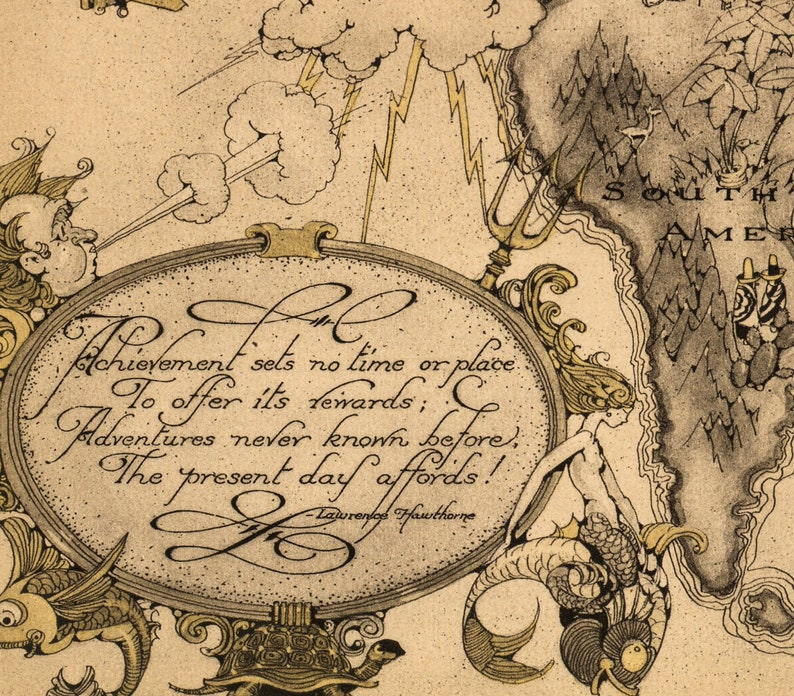 Achievement sets no time or place
To offer its rewards;
Adventures never known before,
The present day affords!
Lawrence Hawthorne
SOUTH
AMER